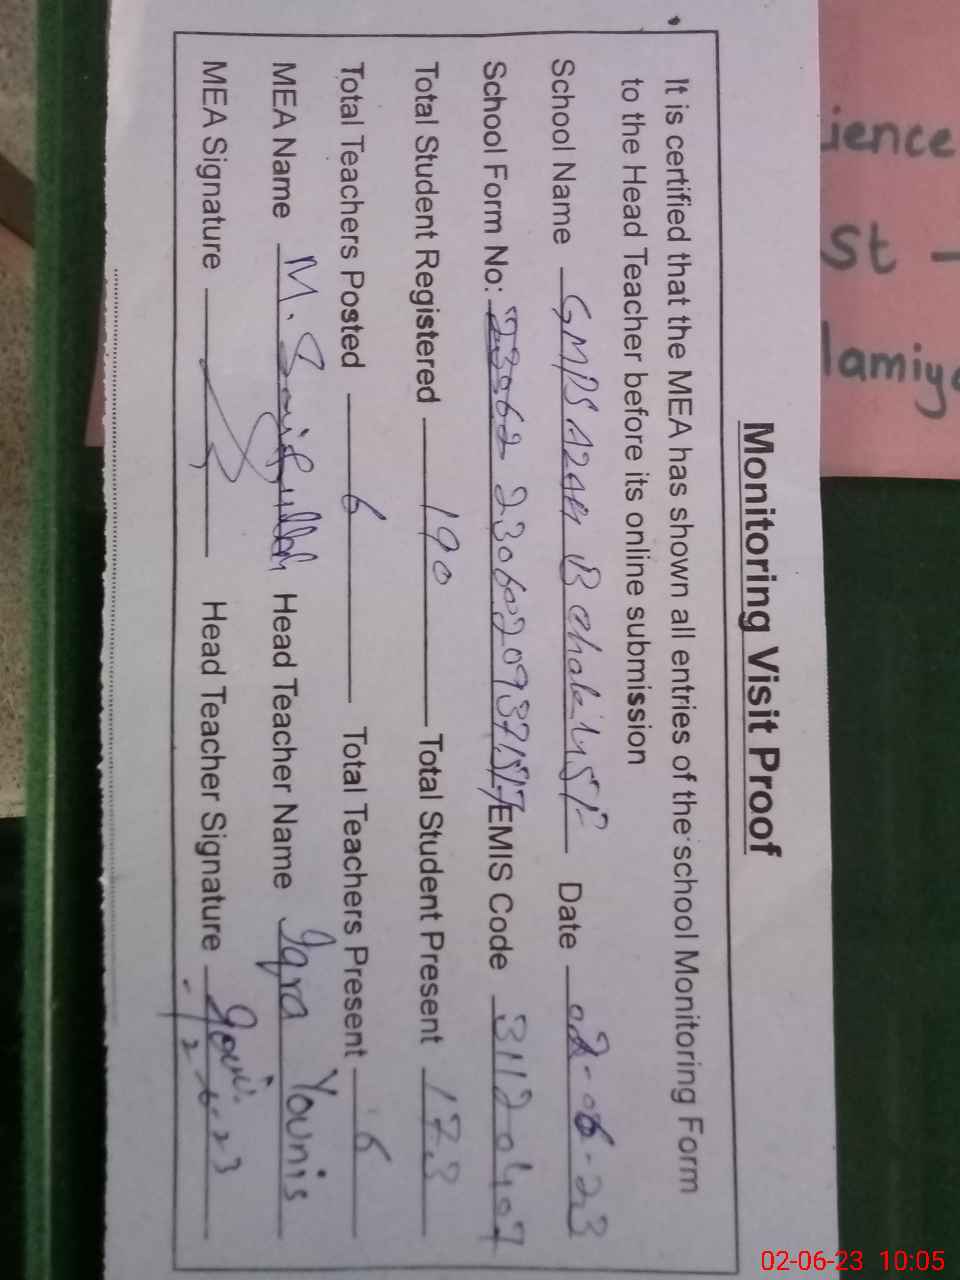 ience
St -
lamiya
Monitoring Visit Proof
It is certified that the MEA has shown all entries of the school Monitoring Form
to the Head Teacher before its online submission
School Name GMPS Date 02-06-23
School Form No: EMIS Code 31120407
Total Student Registered 190 Total Student Present 173
Total Teachers Posted 6 Total Teachers Present 6
MEA Name M. Saifullah Head Teacher Name Iqra Younis
MEA Signature Head Teacher Signature
2-6-23
02-06-23 10:05